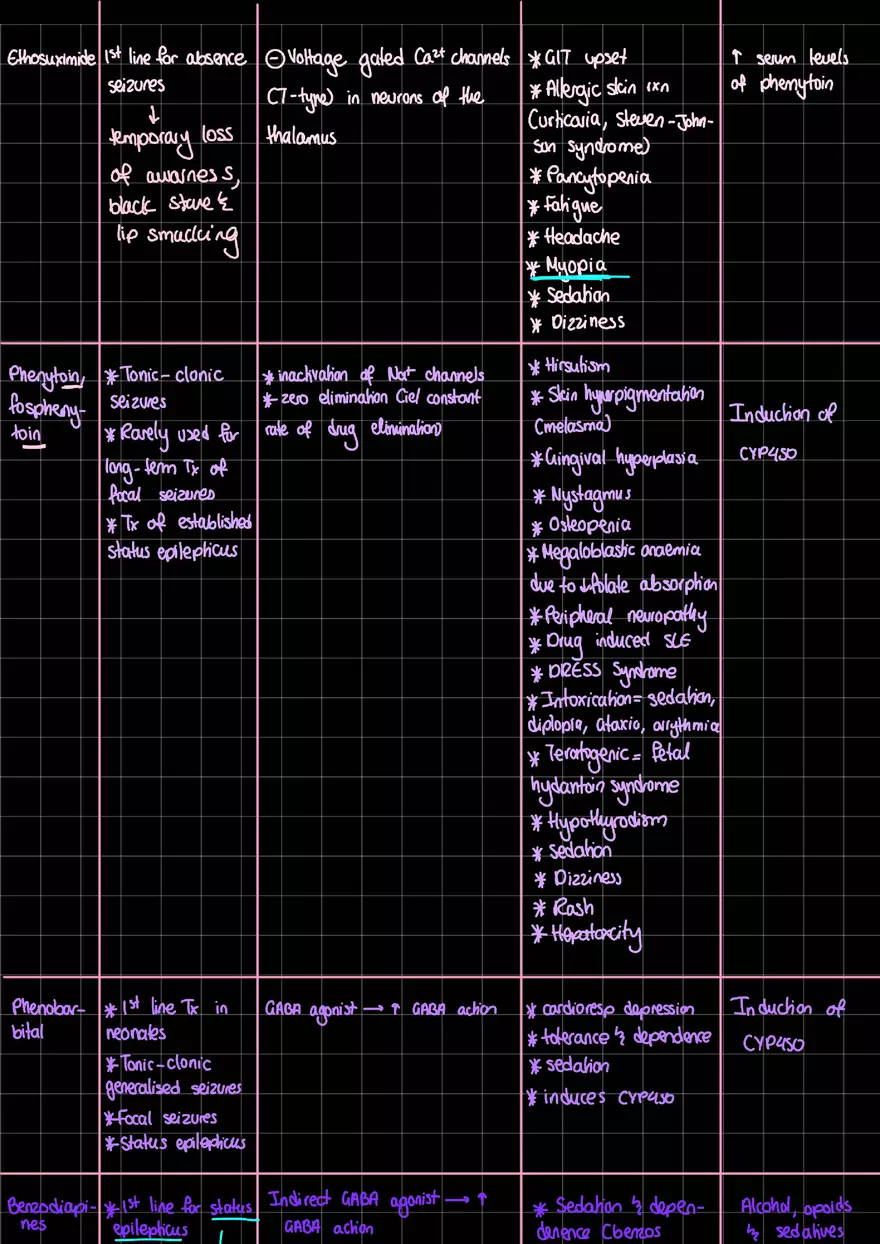 Ethosuximide
1st line for absence
seizures
↓
temporary loss
of awarness,
black stare &
lip smacking
⊖ Voltage gated Ca²⁺ channels
(T-type) in neurons of the
thalamus
* GIT upset
* Allergic skin rxn
(urticaria, Steven-John-
son syndrome)
* Pancytopenia
* Fatigue
* Headache
* Myopia
* Sedation
* Dizziness
↑ serum levels
of phenytoin
Phenytoin,
fospheny-
toin
* Tonic-clonic
seizures
* Rarely used for
long-term Tx of
focal seizures
* Tx of established
status epilepticus
* inactivation of Na⁺ channels
* zero elimination (ie constant
rate of drug elimination)
* Hirsutism
* Skin hyperpigmentation
(melasma)
* Gingival hyperplasia
* Nystagmus
* Osteopenia
* Megaloblastic anaemia
due to ↓ folate absorption
* Peripheral neuropathy
* Drug induced SLE
* DRESS Syndrome
* Intoxication = sedation,
diplopia, ataxia, arrythmia
* Teratogenic = fetal
hydantoin syndrome
* Hypothyrodism
* Sedation
* Dizziness
* Rash
* Hepatoxcity
Induction of
CYP450
Phenobar-
bital
* 1st line Tx in
neonates
* Tonic-clonic
generalised seizures
* Focal seizures
* Status epilepticus
GABA agonist → ↑ GABA action
* cardioresp depression
* tolerance & dependence
* sedation
* induces CYP450
Induction of
CYP450
Benzodiapi-
nes
* 1st line for status
epilepticus
Indirect GABA agonist → ↑
GABA action
* Sedation & depen-
denence (benzos
Alcohol, opoids
& sedatives